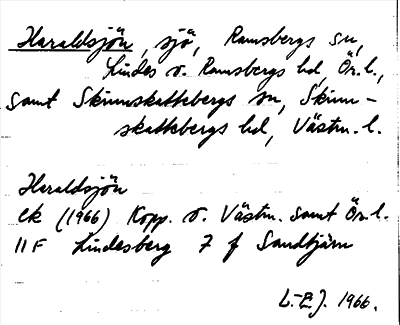 Haraldsjön, sjö, Ramsbergs sn,
Lindes o. Ramsbergs hd, Ör. l.,
samt Skinnskattebergs sn, Skinn-
skattebergs hd, Västm. l.
Haraldsjön
ek (1966) Kopp. o. Västm. samt Ör. l.
11F Lindesberg 7 f Sandtjärn
L.-E.J. 1966.